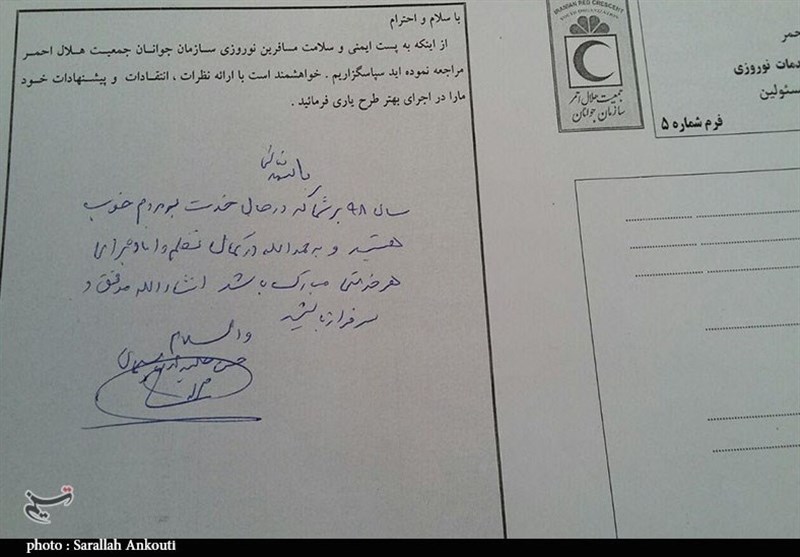 با سلام و احترام
از اینکه به پست ایمنی و سلامت مسافرین نوروزی سازمان جوانان جمعیت هلال احمر
مراجعه نموده اید سپاسگزاریم . خواهشمند است با ارائه نظرات ، انتقادات و پیشنهادات خود
مارا در اجرای بهتر طرح یاری فرمائید .
سال ۹۸ بر شما که در حال خدمت به مردم خوب
هستید و بحمدالله در کمال نظم و
هر خدمتی مبارک باشد انشاءالله موفق و
سرفراز باشید
والسلام
IRANIAN RED CRESCENT
YOUTH ORGANIZATION
جمعیت هلال احمر
سازمان جوانان
احمر
دمات نوروزی
سئولین
فرم شماره ۵
تسنیم
photo : Sarallah Ankouti